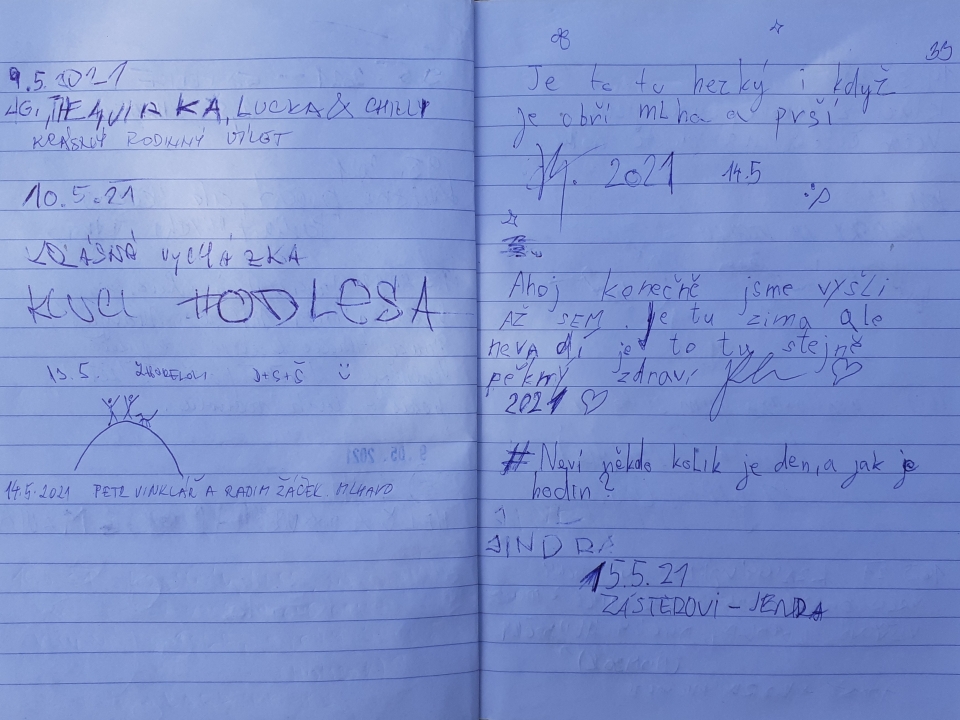 9.5.2021
LUCKA & CHILLI
KRÁSNÝ RODINNÝ VÝLET
10.5.21
KRÁSNÁ VYCHÁZKA
KLUCI #ODLESA
13.5. J+S+Š
14.5.2021 PETR VINKLÁŘ A RADIM ŽÁČEK. MLHAVO
39
Je to tu hezký i když
je obří mlha a prší
2021 14.5
:P
Ahoj konečně jsme vyšli
AŽ SEM. je tu zima ale
nevadí je to tu stejně
pěkný zdraví
2021
# Neví někdo kolik je den, a jak je
hodin?
JINDRA
15.5.21
ZÁSTEROVI - JENDA